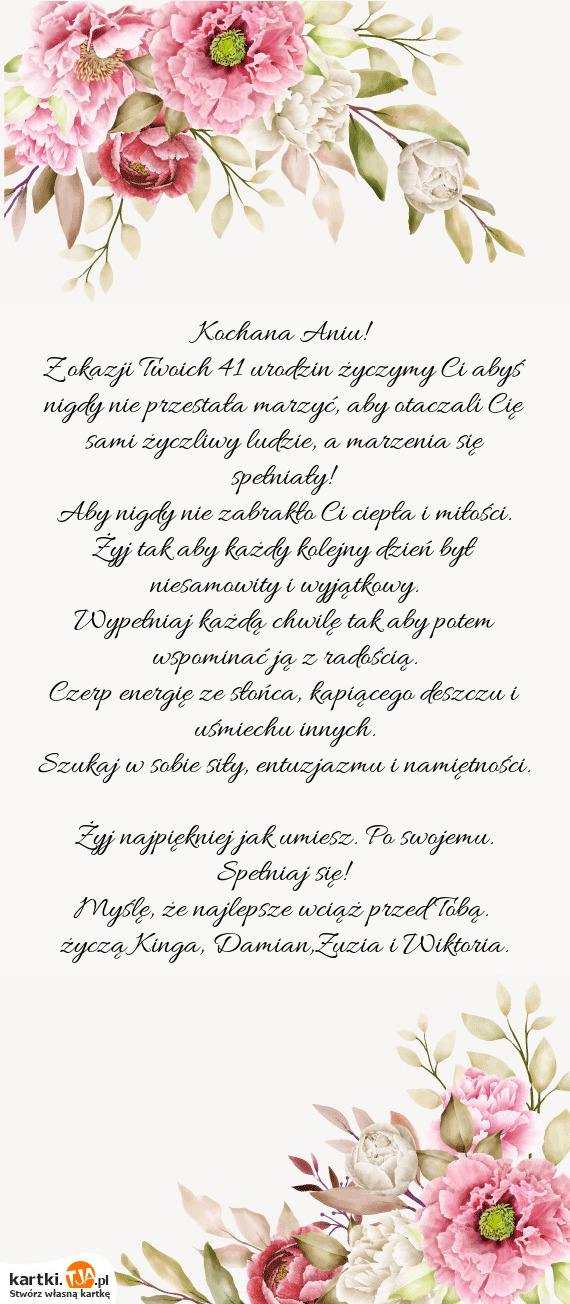 Kochana Aniu!
Z okazji Twoich 41 urodzin życzymy Ci abyś
nigdy nie przestała marzyć, aby otaczali Cię
sami życzliwy ludzie, a marzenia się
spełniały!
Aby nigdy nie zabrakło Ci ciepła i miłości.
Żyj tak aby każdy kolejny dzień był
niesamowity i wyjątkowy.
Wypełniaj każdą chwilę tak aby potem
wspominać ją z radością.
Czerp energię ze słońca, kapiącego deszczu i
uśmiechu innych.
Szukaj w sobie siły, entuzjazmu i namiętności.
Żyj najpiękniej jak umiesz. Po swojemu.
Spełniaj się!
Myślę, że najlepsze wciąż przed Tobą.
życzą Kinga, Damian,Zuzia i Wiktoria.
kartki.TJA.pl
Stwórz własną kartkę